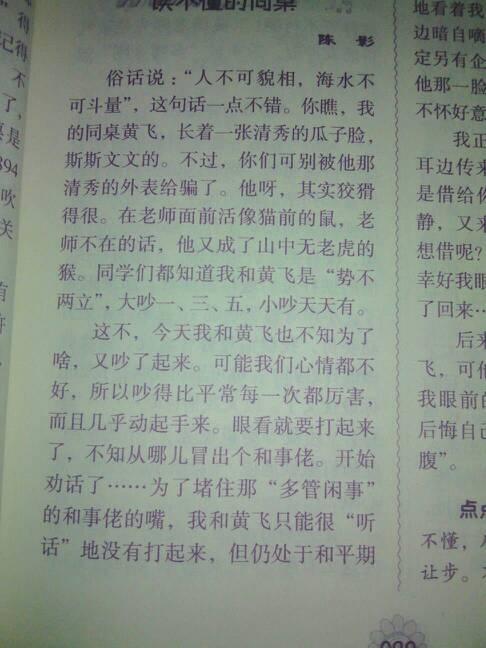 读不懂的同桌
陈 影
俗话说：“人不可貌相，海水不
可斗量”，这句话一点不错。你瞧，我
的同桌黄飞，长着一张清秀的瓜子脸，
斯斯文文的。不过，你们可别被他那
清秀的外表给骗了。他呀，其实狡猾
得很。在老师面前活像猫前的鼠，老
师不在的话，他又成了山中无老虎的
猴。同学们都知道我和黄飞是“势不
两立”，大吵一、三、五，小吵天天有。
这不，今天我和黄飞也不知为了
啥，又吵了起来。可能我们心情都不
好，所以吵得比平常每一次都厉害，
而且几乎动起手来。眼看就要打起来
了，不知从哪儿冒出个和事佬。开始
劝话了……为了堵住那“多管闲事”
的和事佬的嘴，我和黄飞只能很“听
话”地没有打起来，但仍处于和平期
地看着我
边暗自嘀
定另有企
他那一脸
不怀好意
我正
耳边传来
是借给你
静，又来
想借呢？
幸好我眼
了回来…
后来
飞，可他
我眼前的
后悔自己
腹”。
点点
不懂，
让步。